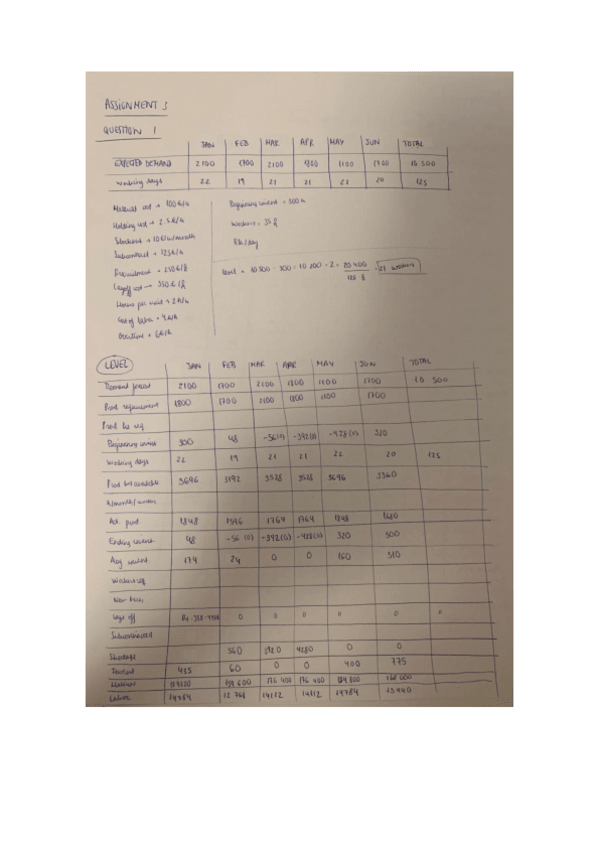 ASSIGNMENT 3
QUESTION 1
JAN FEB MAR APR MAY JUN TOTAL
EXPECTED DEMAND 2100 1700 2100 1800 1100 1700 10 500
Working days 22 19 21 21 22 20 125
Material cost → 100€/u Beginning invent = 300u
Holding cost → 2.5€/u Workers = 35
Stockout → 10€/u/month 8h/day
Subcontract → 125€/u
Recruitment = 250€
Level = 10 500 - 300 = 10 200 · 2 = 20 400
125 · 8
Layoff cost → 350€
Hours per unit → 2h/u
Cost of labor = 4€/h
Overtime = 6€/h
LEVEL JAN FEB MAR APR MAY JUN TOTAL
Demand forecast 2100 1700 2100 1800 1100 1700 10 500
Prod requirement 1800 1700 2100 1800 1100 1700
Prod hs req
Beginning invent 300 48 -56(0) -392(0) -428(0) 320
Working days 22 19 21 21 22 20 125
Prod hrs available 3696 3192 3528 3528 3696 3360
h/month/worker
Act. prod 1848 1596 1764 1764 1848 1680
Ending invent 48 -56 (0) -392(0) -428(0) 320 300
Avg invent. 174 24 0 0 160 310
Workers req
New hires
Lays off 0 0 0 0 0 0
Subcontracted
Shortage 560 3920 4280 0 0
Invent 435 60 0 0 400 775
Material 159 600 176 400 176 400 184 800 168 000
Labor 14784 12 768 14112 14112 14784 13 440